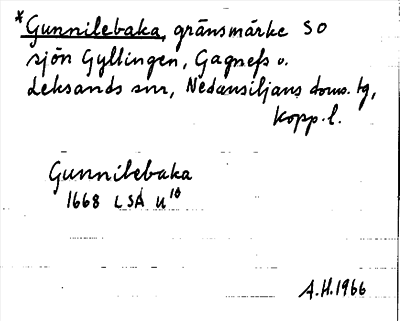 *Gunnilebaka, gränsmärke SO
sjön Gyllingen, Gagnefs o.
Leksands snr, Nedansiljans doms. tg,
Kopp. l.
Gunnilebaka
1668 LSA U10
A.H.1966